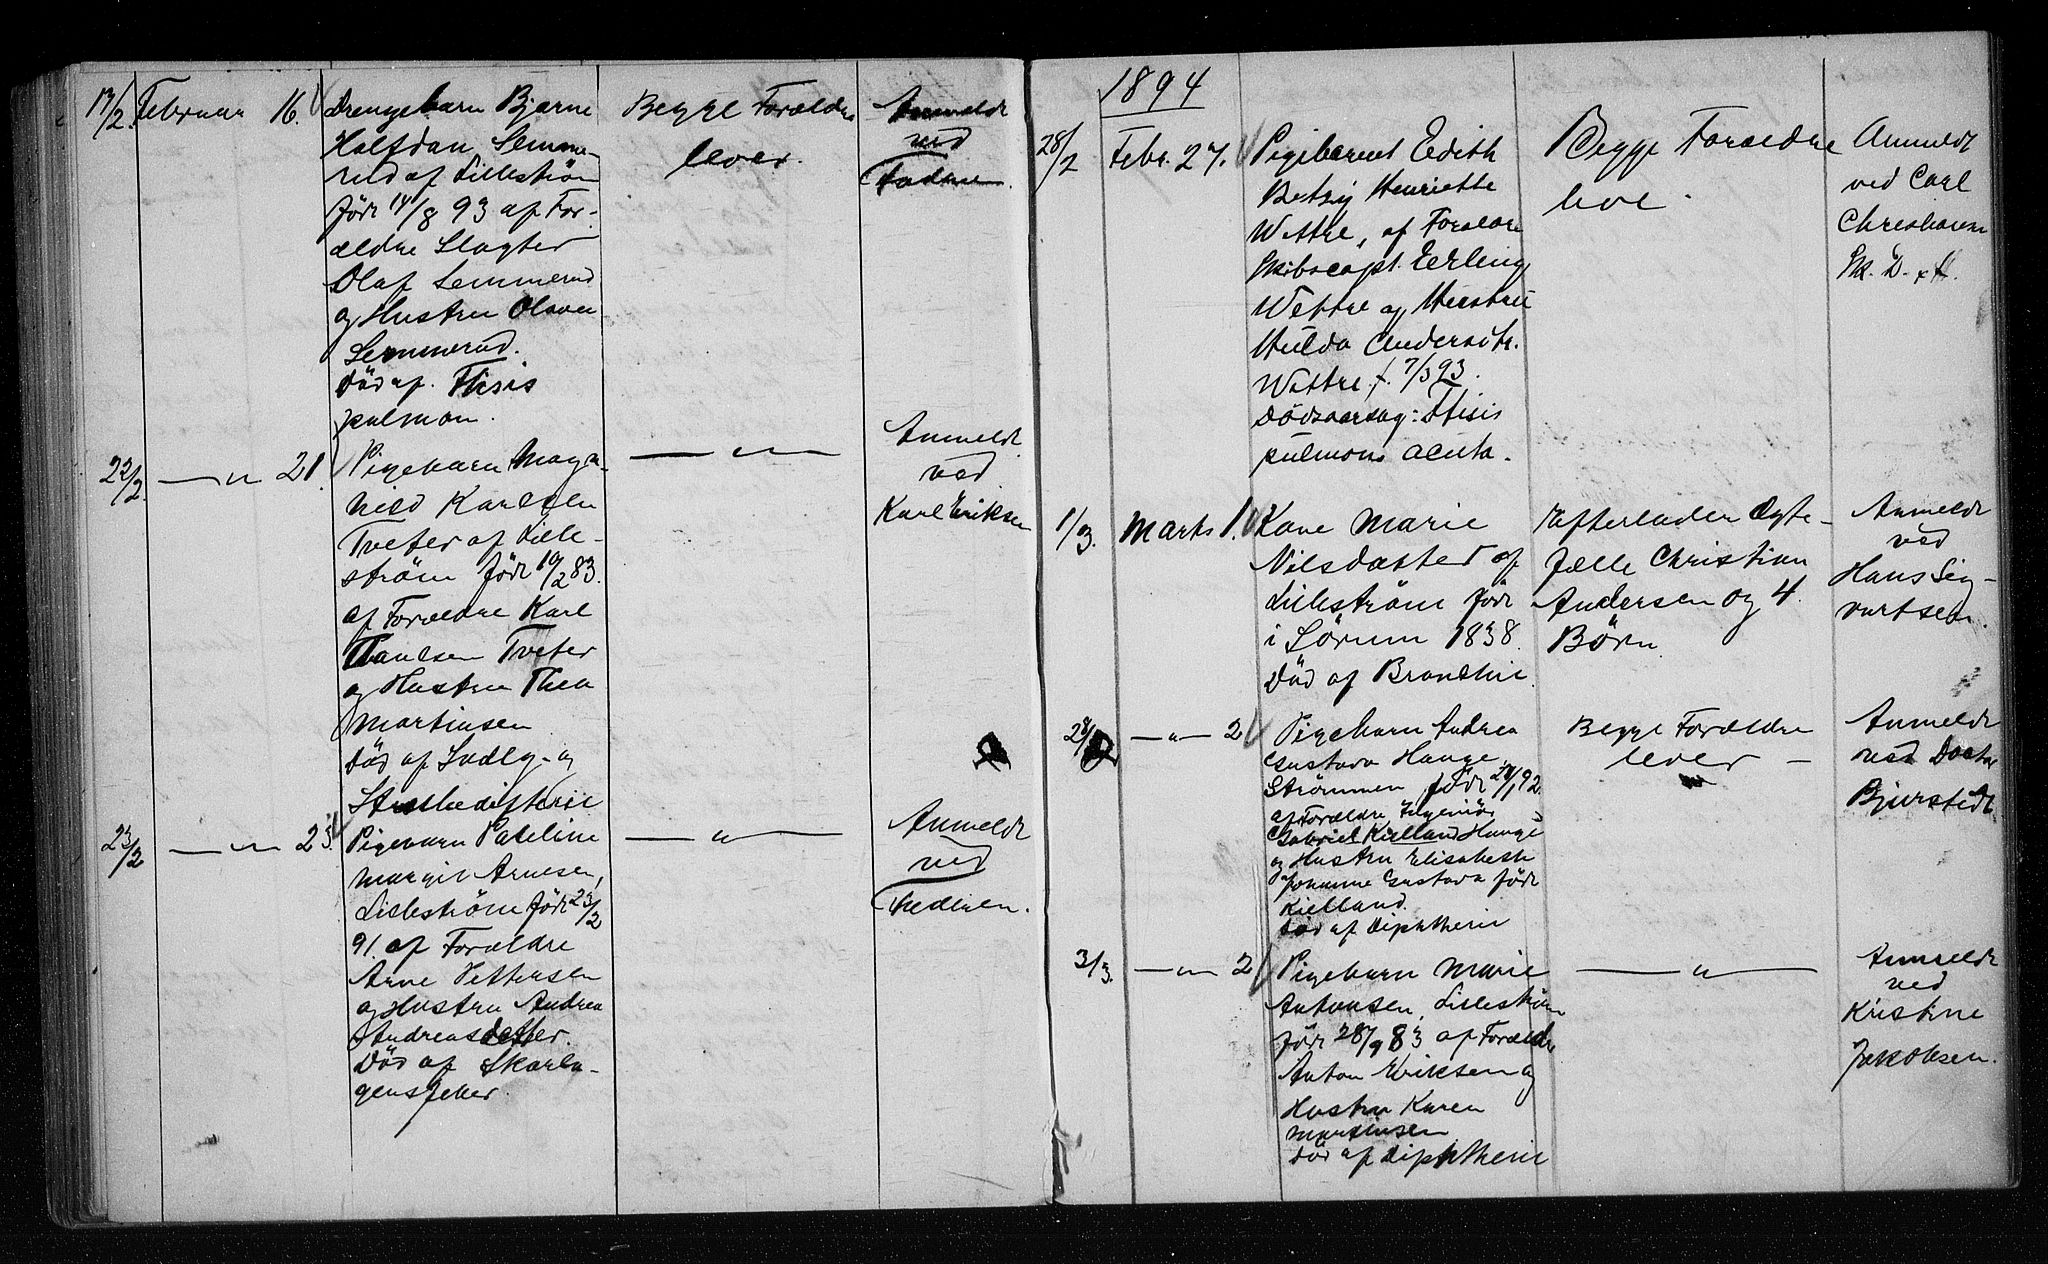 17/2. Februar 16. Drengebarn Bjarne
Halfdan Semme-
rud af Lilleström
född 14/8 93 af For-
ældre Slagter
Olaf Semmerud
og Hustru Olsen
Semmerud.
Död af. Thisis
pulmon.
Begge Forældre
lever.
Anmeldt
ved
Faderen.
22/2. — " — 21. Pigebarn Magn-
hild Karlsen
Tveter af Lille-
ström född 10/2 83.
af Forældre Karl
Paulsen Tveter
og Hustru Thea
Martinsen
Död af Indly- og
Strubedifterie
— " —
Anmeldt
ved
Karl Eriksen
23/2 — " — 23. Pigebarn Pauline
Margit Arnesen,
Lilleström född 23/2
91. af Forældre
Arne Pettersen
og Hustru Andrea
Andreasdatter.
Död af Skarla-
gensfeber.
— " —
Anmeldt
ved
Faderen.
1894
28/2 Febr. 27. Pigebarnet Edith
Betzy Henriette
Wettre, af Forældre
Skibscapt. Erling
Wettre og Hustru
Hulda Andersdtr.
Wettre f. 7/3 93.
Dödsaarsag: Thisis
pulmonis acuta.
Begge Forældre
leve.
Anmeldt
ved Carl
Christiansen
Sk. D.
1/3. Marts 1. Kone Marie
Nilsdatter af
Lilleström född
i Sörum 1838.
Död af Bronchit
Efterlader Ægte-
fælle Christian
Andersen og 4
Börn.
Anmeldt
ved
Hans Sig-
vartsen.
28/2 — " — 2 Pigebarn Andrea
Gustava Hauge,
Strömmen född 24/1 92
af Forældre Ingeniör
Gabriel Kielland Hauge
og Hustru Elisabeth
Johanne Gustava född
Kielland.
Död af Diphtherie
Begge Forældre
lever —
Anmeldt
ved Doctor
Bjurstedt.
3/3. — " — 2 Pigebarn Marie
Antonsen, Lilleström
född 28/9 83 af Forældre
Anton Eriksen og
Hustru Karen
Martinsen
Död af Diphtherie
— " —
Anmeldt
ved
Kristine
Jakobsen.